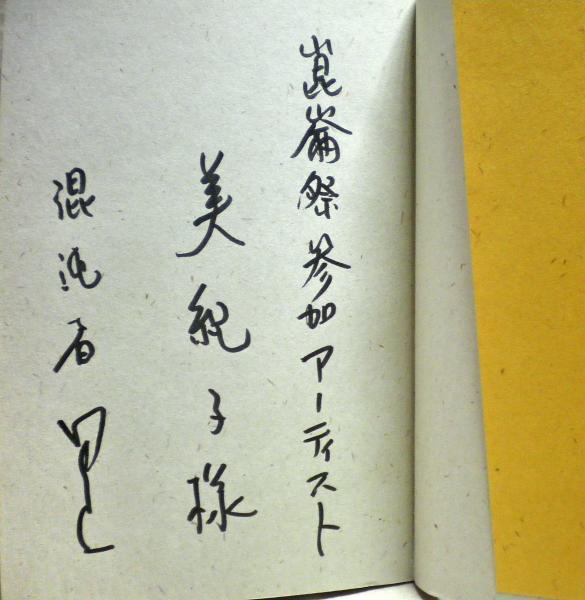 崑崙祭参加アーティスト
美紀子様
混沌有